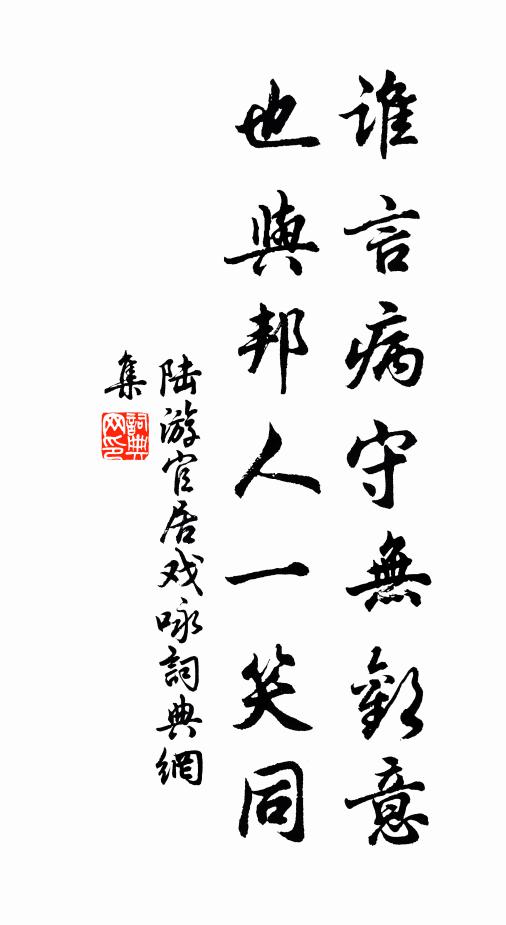 谁言病守無歡意
也與邦人一笑同
陆游官居戏咏詞典網
集
詞典网印